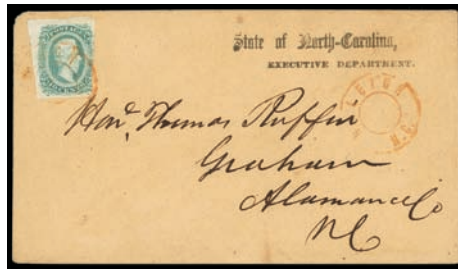 State of North-Carolina,
EXECUTIVE DEPARTMENT.
Hon. Thomas Ruffin
Graham
Alamance Co
NC
N.C.